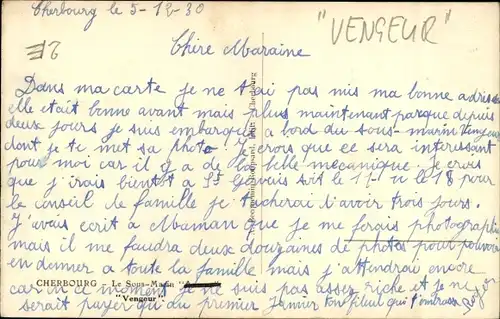 Cherbourg le 5-12-30
"VENGEUR"
Chère Maraine
Dans ma carte je ne t'ai pas mis ma bonne adresse
elle était bonne avant mais plus maintenant parque depuis
deux jours je suis embarqué a bord du sous-marin Vengeur
dont je te met sa photo! Je crois que ce sera interessant
pour moi car il y a de la belle mecanique. Je crois
que j'irais bientôt a St Gervais soit le 11 ou le 18 pour
le conseil de famille je tacherai d'avoir trois jours.
J'avais ecrit a Maman que je me ferais photographier
mais il me faudra deux douzaines de photos pour pouvoir
en donner a toute la famille mais j'attendrai encore
CHERBOURG - Le Sous-Marin
"Vengeur"
car en ce moment je ne suis pas assez riche et je ne
serait payer qu'au premier Janvier ton filleul qui t'embrasse
Roger